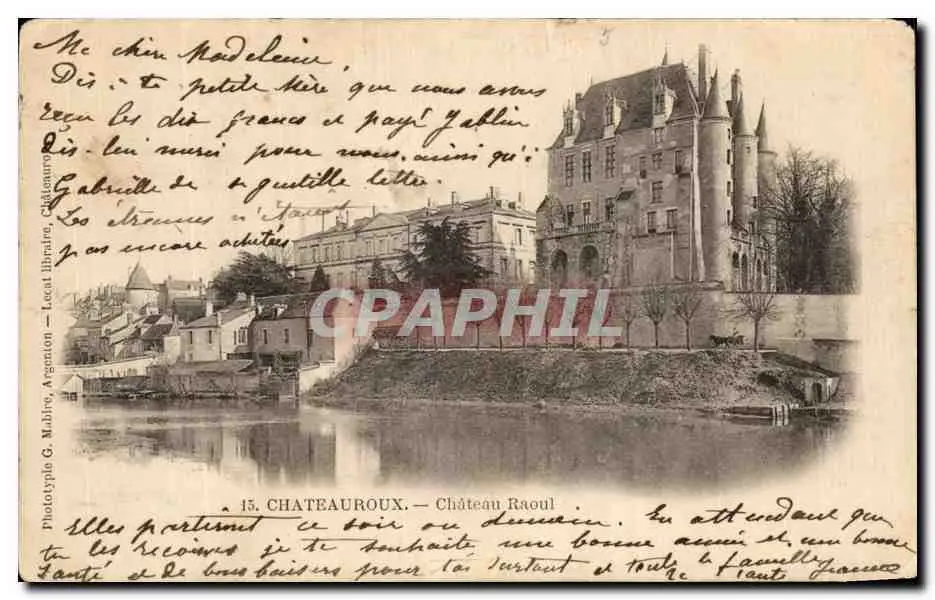 Ma chère Madeleine,
Dis-à ta petite Mère, que nous avons
reçu les dix francs et payé Jablin
Dis-lui merci pour nous, ainsi qu'à
Gabrielle de sa gentille lettre.
Les étrennes n'étaient
pas encore achetées
Phototypie G. Mabire, Argenton — Lecat libraire, Châteauroux
CPAPHIL
15. CHATEAUROUX. — Château Raoul
Elles partiront ce soir ou demain. En attendant que
tu les reçoives je te souhaite une bonne année et une bonne
Santé et de bons baisers pour toi surtout et toute la famille
ta tante Jeanne